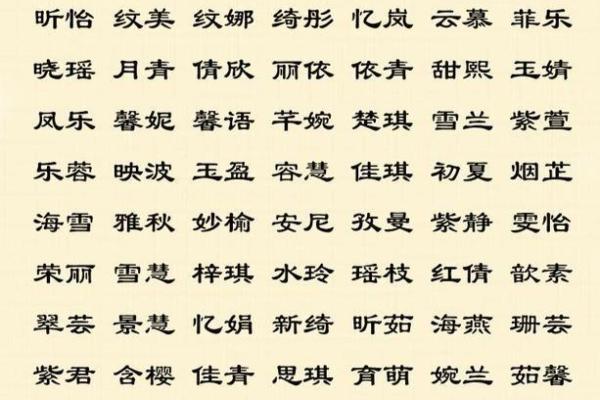 昕怡 纹美 纹娜 绮彤 忆岚 云慕 菲乐
晓瑶 月青 倩欣 丽依 依青 甜熙 玉婧
凤乐 馨妮 馨语 芊婉 楚琪 雪兰 紫萱
乐蓉 映波 玉盈 容慧 佳琪 初夏 烟芷
海雪 雅秋 妙榆 安尼 孜曼 紫静 雯怡
荣丽 雪慧 梓琪 水玲 瑶枝 红倩 歆素
翠芸 景慧 忆娟 新绮 昕茹 海燕 珊芸
紫君 含樱 佳青 思琪 育萌 婉兰 茹馨